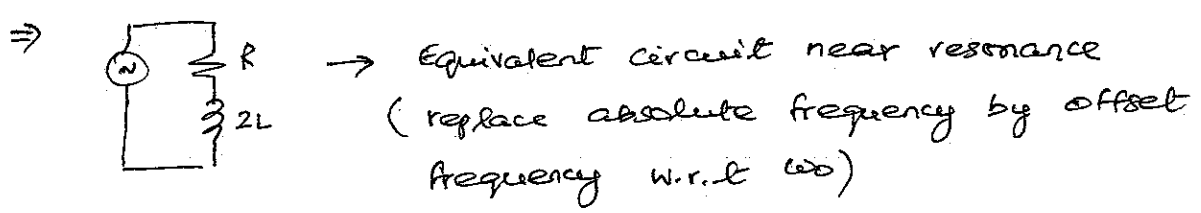 ⇒ R → Equivalent circuit near resonance
2L (replace absolute frequency by offset
frequency w.r.t ω0)